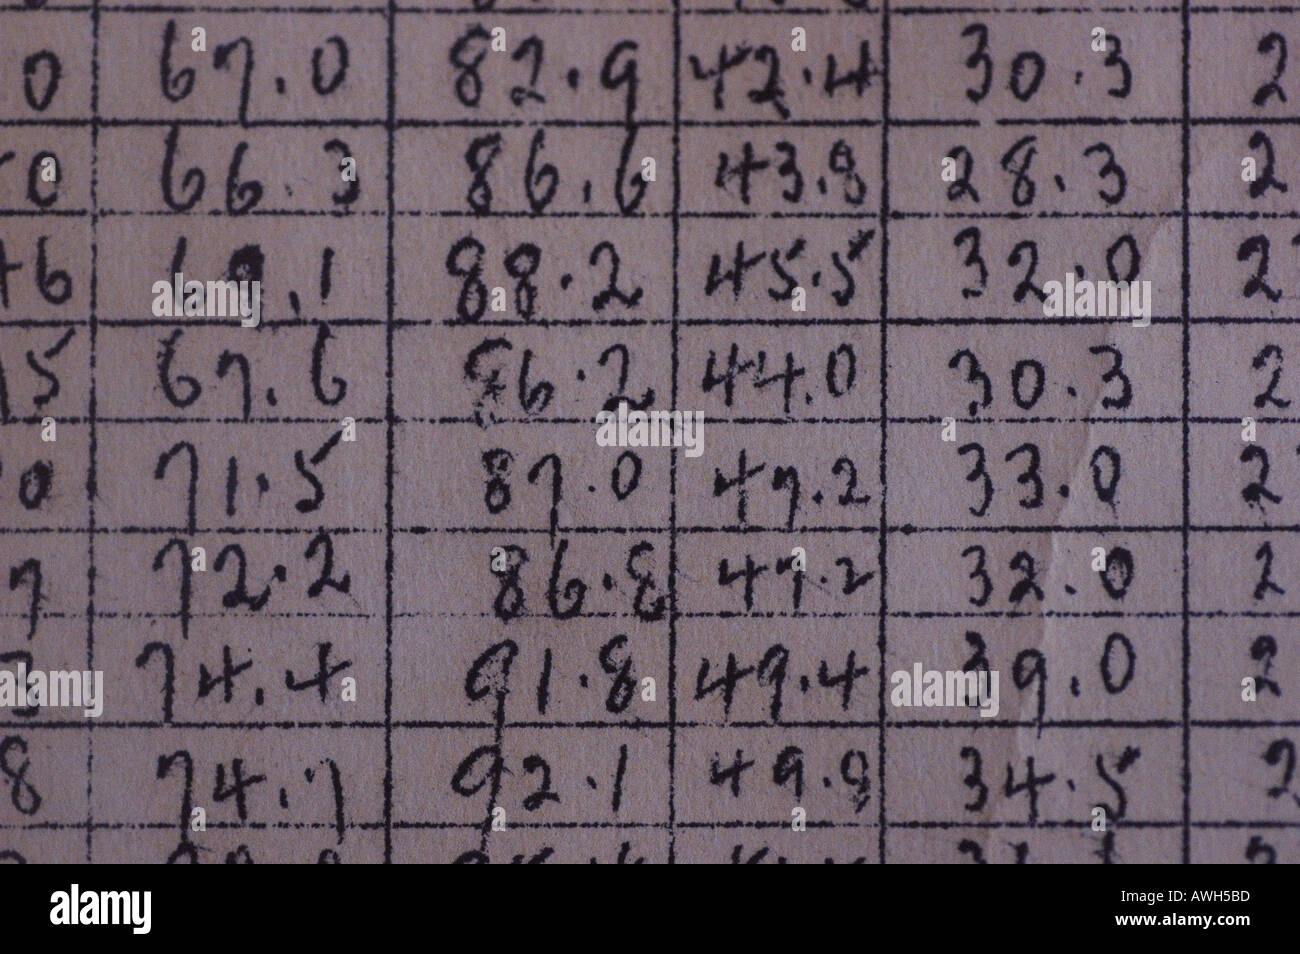 0 67.0 82.9 42.4 30.3 2
0 66.3 86.6 43.8 28.3 2
46 69.1 88.2 45.5 32.0 2
5 67.6 86.2 44.0 30.3 2
0 71.5 87.0 47.2 33.0 2
7 72.2 86.8 47.2 32.0 2
3 74.4 91.8 49.4 39.0 2
8 74.7 92.1 49.8 34.5 2
alamy
Image ID: AWH5BD
www.alamy.com